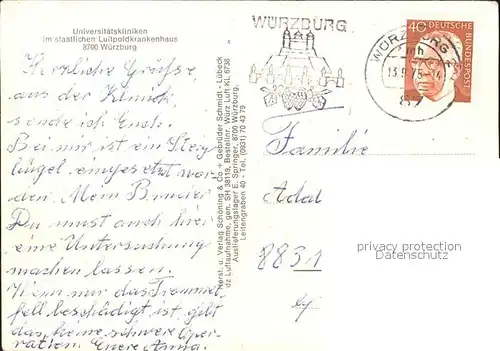 Universitätskliniken
im staatlichen Luitpoldkrankenhaus
8700 Würzburg
Herzliche Grüße,
aus der Klinik,
sende ich Euch.
Bei mir ist ein Steig
bügel, eingesetzt wor
den. Mein Bruder
Du musst auch hier
eine Untersuchung
machen lassen.
Wenn nur das Trommel
fell beschädigt ist, gibt
das keine schwire Oper-
ration. Euere Anna.
Herst. u. Verlag Schöning & Co + Gebrüder Schmidt - Lübeck
dz Luftaufnahme, gen. SH 38119, Bestellnr. Würz Luft KL 6738
Auslieferungslager E. Springer, 8700 Würzburg,
Leitengraben 40 - Tel. (0931) 70 43 79
WÜRZBURG
WÜRZBURG
13.9.75
87
40
DEUTSCHE
BUNDESPOST
Familie
Adal
8831
privacy protection
Datenschutz